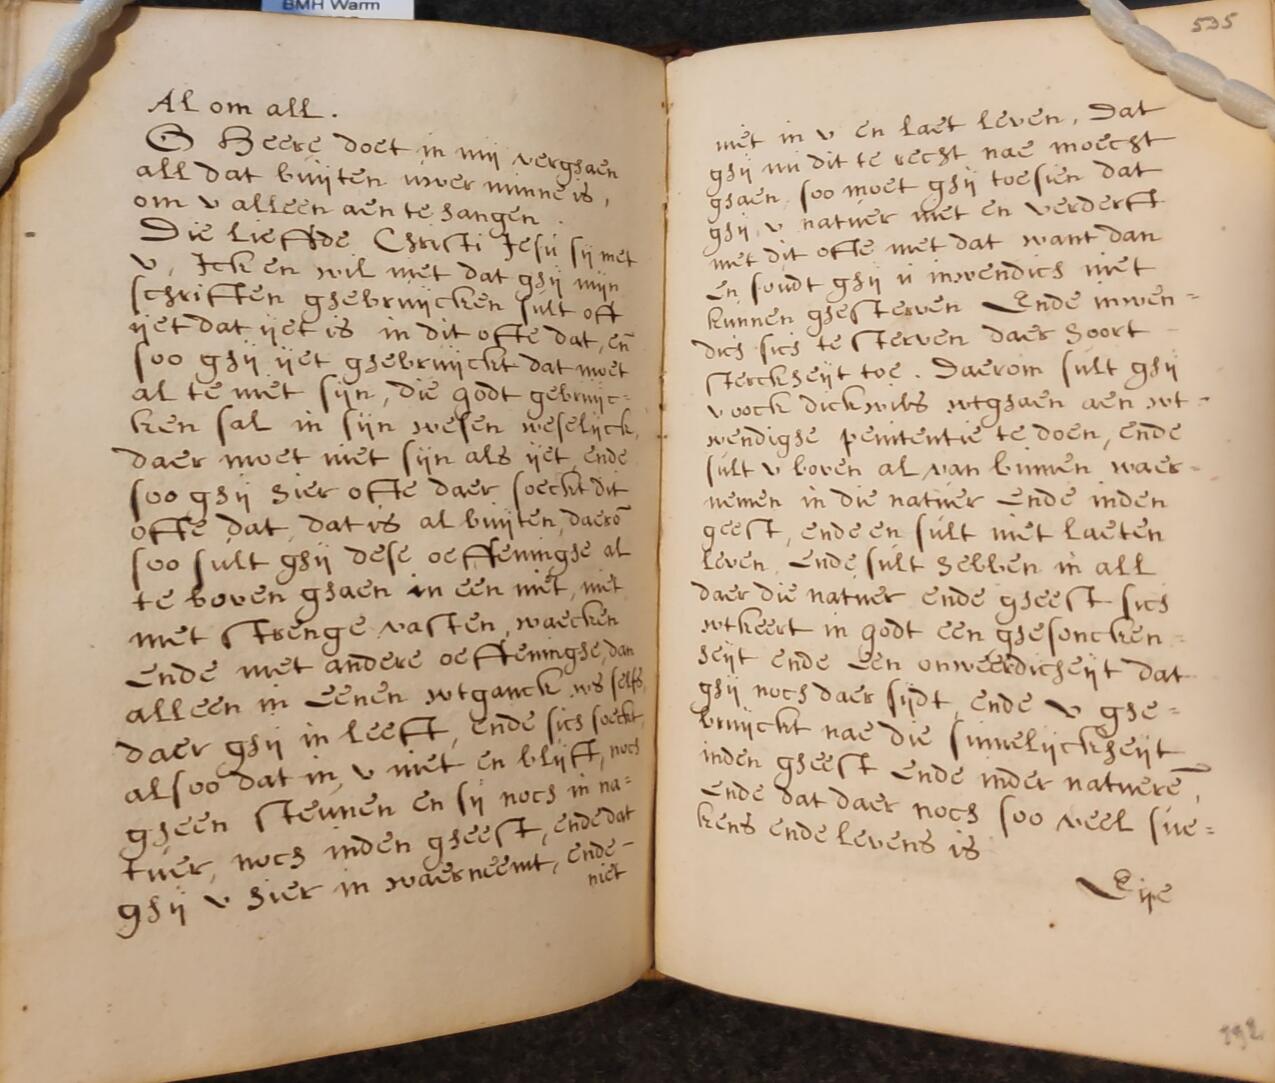 BMH Warm
Al om all.
O Heere doet in mij verghaen
all dat buijten uwer minne is,
om v alleen aen te hangen.
Die lieffde Christi Jesu sij met
v, Ick en wil niet dat ghij mijn
schrifften ghebruijcken sult oft
ijet dat ijet is in dit ofte dat, en̄
soo ghij ijet ghebruijckt dat moet
al te niet sijn, die godt gebruijc=
ken sal in sijn wesen weselijck,
daer moet niet sijn als ijet, ende
soo ghij hier ofte daer soeckt dit
ofte dat, dat is al buijten, daerō
soo sult ghij dese oeffeninghe al
te boven ghaen in een niet, niet
met strenge vasten, waecken
Ende met andere oeffeninghe, dan
alleen in eenen wtganck ws selfs,
daer ghij in leeft, ende sich soeckt,
alsoo dat in v niet en blijft, noch
gheen steunen en sij noch in na=
tuer, noch inden gheest, ende dat
ghij v hier in waerneemt, ende
niet
535
niet in v en laet leven, Dat
ghij nu dit te recht nae moecht
ghaen, soo moet ghij toesien dat
ghij v natuer niet en verderft
met dit ofte met dat want dan
en soudt ghij u inwendich niet
kunnen ghesterven Ende inwen=
dich sich te sterven daer hoort
sterckheijt toe. Daerom sult ghij
v oock dickwils wtghaen aen wt=
wendighe penitentie te doen, ende
sult v boven al van binnen waer=
nemen in die natuer Ende inden
geest, ende en sult niet laeten
leven, Ende sult hebben in all
daer die natuer ende gheest sich
wtkeert in godt een ghesoncken=
heijt ende Een onweerdicheijt dat
ghij noch daer sijdt, ende v ghe=
bruijckt nae die sinnelijckheijt
inden gheest Ende inder natuere,
Ende dat daer noch soo veel sue=
kens ende levens is
Eije
192